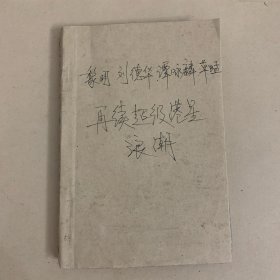 黎明 刘德华 谭咏麟 草蜢
再续超级港星
浪潮